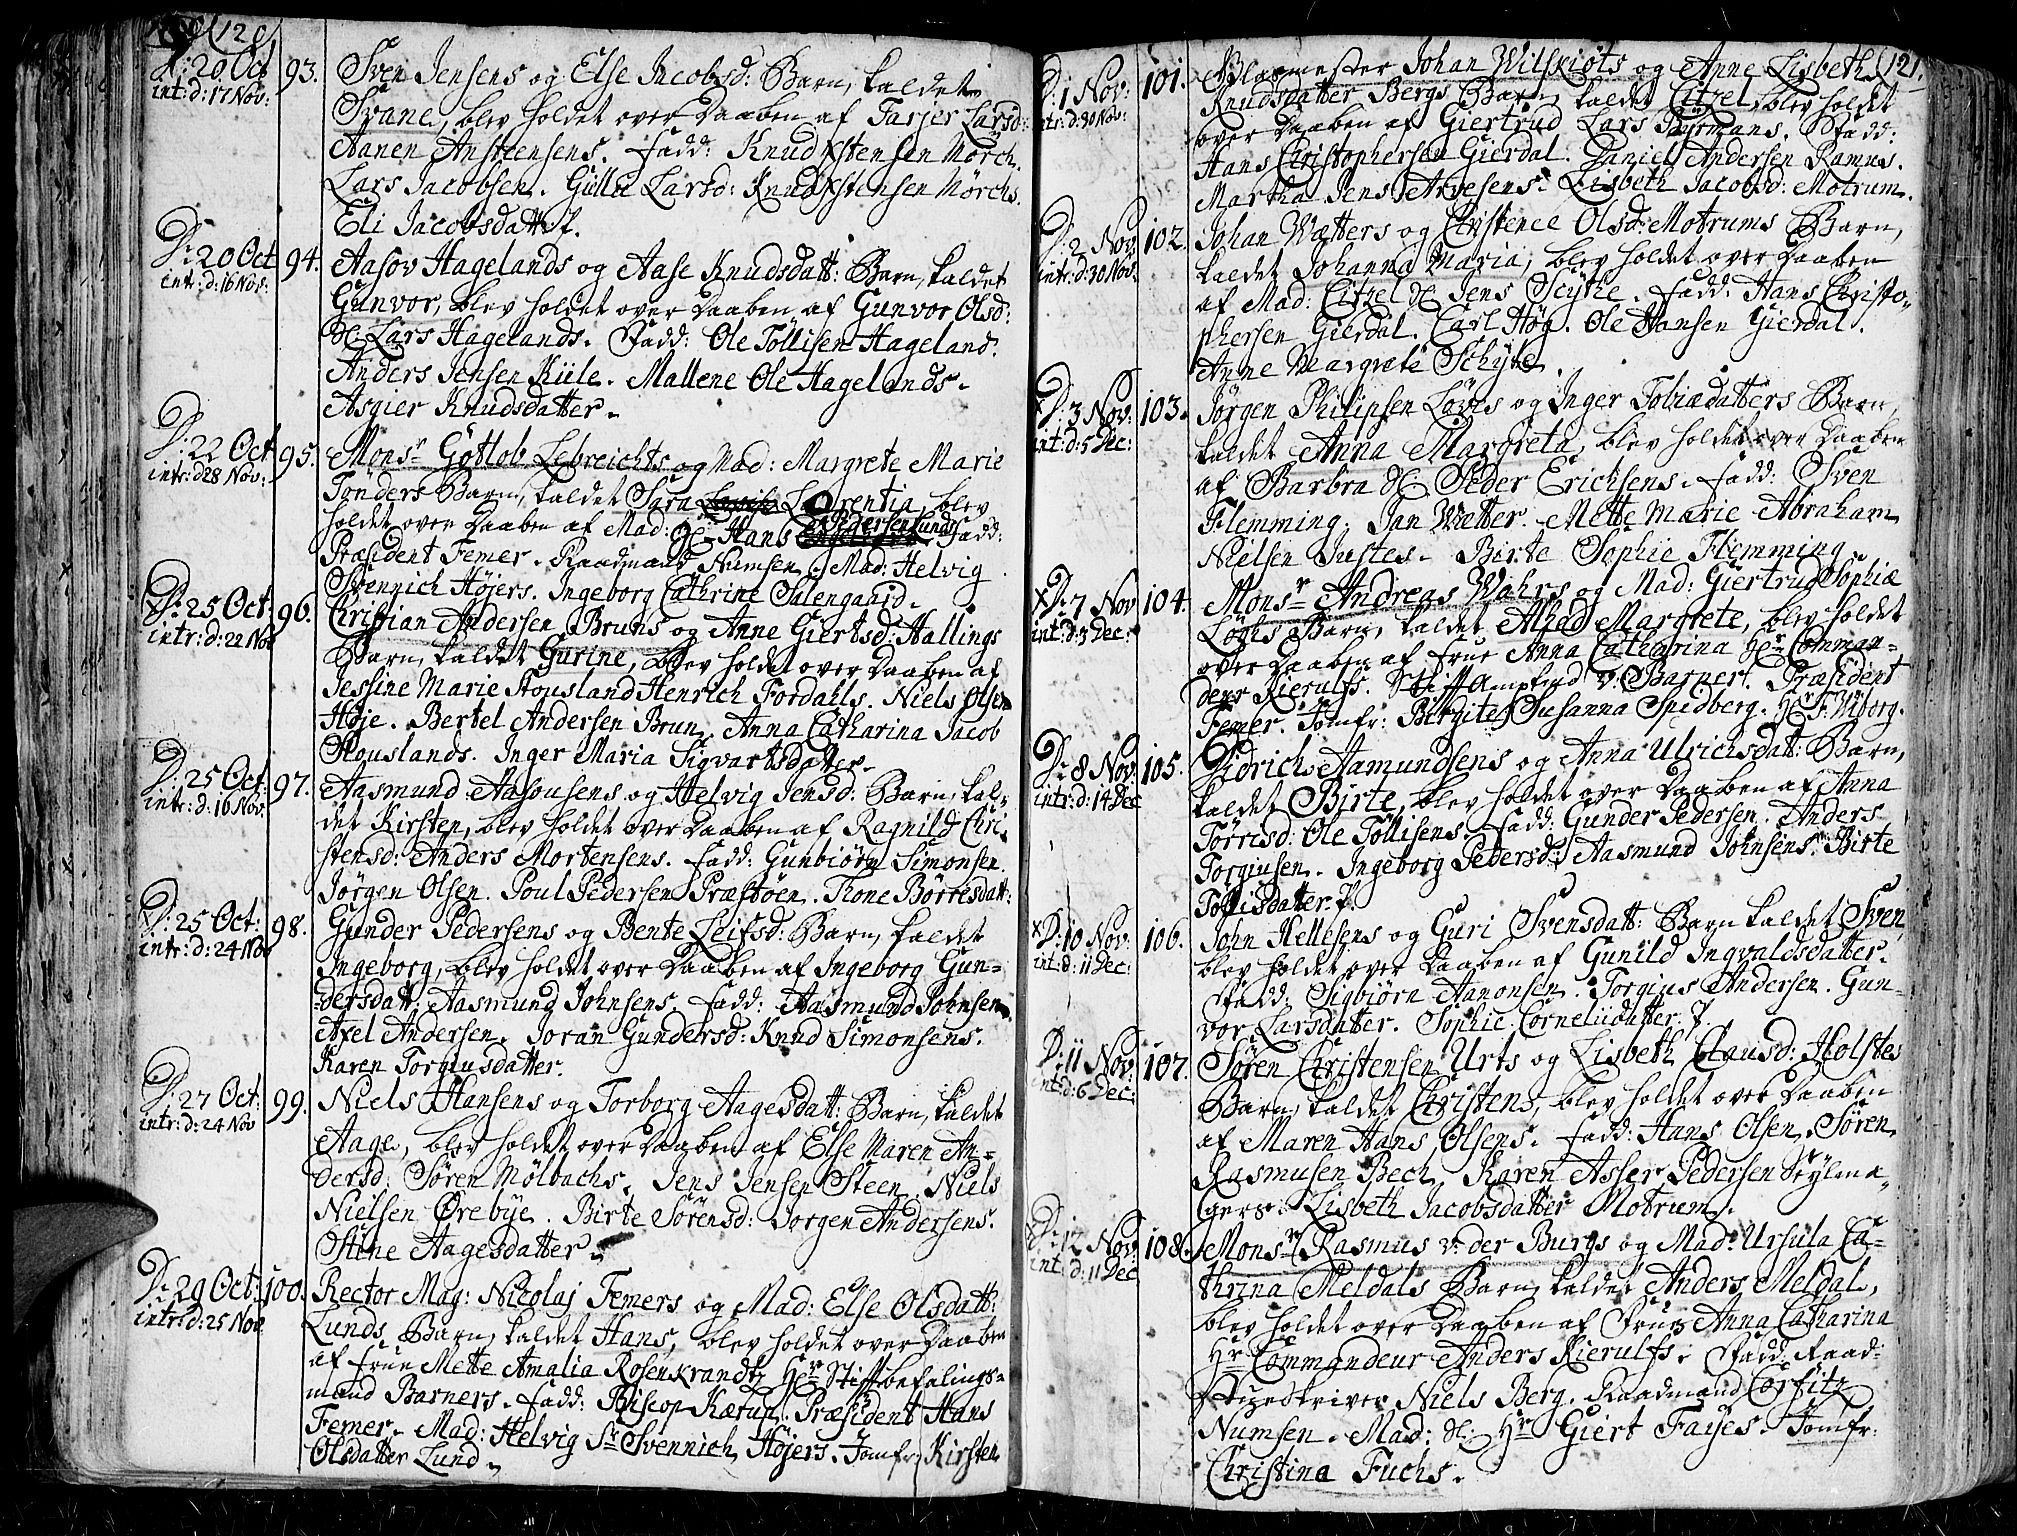 120
D: 20 Oct 93. Sven Jensens og Else Jacobsd: Barn, kaldet
int: d: 17 Nov: Svane, blev holdet over Daaben af Tarjer Larsd:
Aanen Ansteensens. Fadd: Knud Xstensen Mörch.
Lars Jacobsen. Gulle Larsd: Knud Xstensen Mörchs.
Eli Jacobsdatt.
D: 20 Oct 94. Aasov Hagelands og Aase Knudsdatt: Barn, kaldet
intr: d: 16 Nov: Gunvor, blev holdet over Daaben af Gunvor Olsd:
Lars Hagelands. Fadd: Ole Töllisen Hageland.
Anders Jensen Kiile. Mallene Ole Hagelands.
Asgier Knudsdatter.
D: 22 Oct 95. Monsr Gotlob Lebreichts og Mad: Margrete Marie
intr: d 28 Nov: Tönders Barn, kaldet Sara Larentia, blev
holdet over Daaben af Mad: Hans Pedersen Lunds Fadd:
Præsident Femer. Raadmand Numsen. Mad: Helvig
Svennich Höjers. Ingeborg Cathrine Salengaard.
D: 25 Oct: 96. Christian Andersen Bruns og Anne Giertsd: Hallings
intr: d: 22 Nov Barn, kaldet Gurine, blev holdet over Daaben af
Jessine Marie Stousland Henrich Fordahls. Niels Olsen
Höje. Bertel Andersen Brun. Anna Catharina Jacob
Stouslands. Inger Maria Sigvartsdatter.
D: 25 Oct: 97. Aasmund Aasousens og Helvig Jensd: Barn, kal-
intr: d: 16 Nov: det Kirsten, blev holdet over Daaben af Ragnild Chri-
stensd: Anders Mortensens. Fadd: Gunbiörn Simonsen.
Jörgen Olsen. Poul Pedersen Præstöen. Thone Börresdatt:
D: 25 Oct: 98. Gunder Pedersens og Bente Leifsd: Barn, kaldet
intr: d: 24 Nov Ingeborg, blev holdet over Daaben af Ingeborg Gun-
dersdatt: Aasmund Johnsens. Fadd: Aasmund Johnsen.
Axel Andersen. Joran Gundersd: Knud Simonsens.
Karen Torgiusdatter.
D: 27 Oct: 99. Niels Hansens og Torborg Aagesdatt: Barn, kaldet
intr: d: 24 Nov Aage, blev holdet over Daaben af Else Maren An-
dersd: Sören Mölbachs. Jens Jensen Steen. Niels
Nielsen Örebye. Birte Sörensd: Jorgen Andersens.
Stine Aagesdatter.
D: 29 Oct: 100. Rector Mag: Nicolaj Femers og Mad: Else Olsdatt:
intr: d: 25 Nov Lunds Barn, kaldet Hans, blev holdet over Daaben
af Frue Mette Amalia Rosenkrandtz Hr Stiftbefalings-
mand Barners. Fadd: Biscop Kærup. Præsident Hans
Femer. Mad: Helvig Sr Svennich Höjers. Jomfr: Kirsten
Olsdatter Lund.
121.
D: 1 Nov: 101. Glasmester Johan Wilskiöts og Anne Lisbeth
intr: d: 30 Nov: Knudsdatter Bergs Barn, kaldet Citzel, blev holdet
over Daaben af Giertrud Lars Byrmans. Fadd:
Hans Christophersen Gierdal. Daniel Andersen Ramus.
Martha Jens Arvesens. Lisbeth Jacobsd: Motrum.
D: 2 Nov 102. Johan Wætters og Christence Olsd: Motrums Barn,
int: d: 30 Nov: kaldet Johanna Maria, blev holdet over Daaben
af Mad: Citzel Jens Scytte. Fadd: Hans Christo-
phersen Gierdal. Carl Hög. Ole Hansen Gierdal.
Anne Margrete Schytte.
D: 3 Nov: 103. Jörgen Philipsen Löves og Inger Tobiædatters Barn,
int: d: 5 Dec: kaldet Anna Margreta, blev holdet over Daaben
af Barbra Peder Erichsens. Fadd: Sven
Flemming. Jan Wætter. Mette Marie Abraham
Nielsen Justes. Birte Sophie Flemming.
D: 7 Nov 104. Monsr Andreas Wahrs og Mad: Giertrud Sophiæ
int: d: 3 Dec: Löghs Barn, kaldet Alhad Margrete, blev holdet
over Daaben af Frue Anna Catharina Hr Comman-
deur Kierulfs. Stiftampfed v: Barner. Præsident
Femer. Jomfr: Birgite Susanna Spidberg. Hr F: Wiborg.
D: 8 Nov: 105. Didrich Aamundsens og Anna Ulrichsdatt: Barn,
intr: d: 14 Dec kaldet Birte, blev holdet over Daaben af Anna
Törrisd: Ole Töllisens. Fadd: Gunder Pedersen. Anders
Torgiusen. Ingeborg Pedersd: Aasmund Johnsens. Birte
Töllisdatter.
D: 10 Nov: 106. John Hellesens og Guri Svensdatt: Barn kaldet Sven,
int: d: 11 Dec: blev holdet over Daaben af Gunild Ingvaldsdatter.
Fadd: Sigbiörn Aanonsen. Torgius Andersen. Gun-
vor Larsdatter. Sophie Corneliidatter.
D: 11 Nov: 107. Sören Christensen Urts og Lisbeth Clausd: Holstes
int: d: 6 Dec: Barn, kaldet Christen, blev holdet over Daaben
af Maren Hans Olsens. Fadd: Hans Olsen. Sören
Rasmusen Bech. Karen Asser Pedersen Seylma-
gers. Lisbeth Jacobsdatter Motrum.
D: 12 Nov: 108. Monsr Rasmus v: der Burgs og Mad: Ursula Ca-
int: d: 11 Dec thrina Meldals Barn, kaldet Anders Meldal,
blev holdet over Daaben af Frue Anna Catharina
Hr Commandeur Anders Kierulfs. Fadd: Raad-
stueskriver Niels Berg. Raadmand Corfitz
Numsen. Mad: Hr Giert Fayes. Jomfr:
Christina Fuchs.